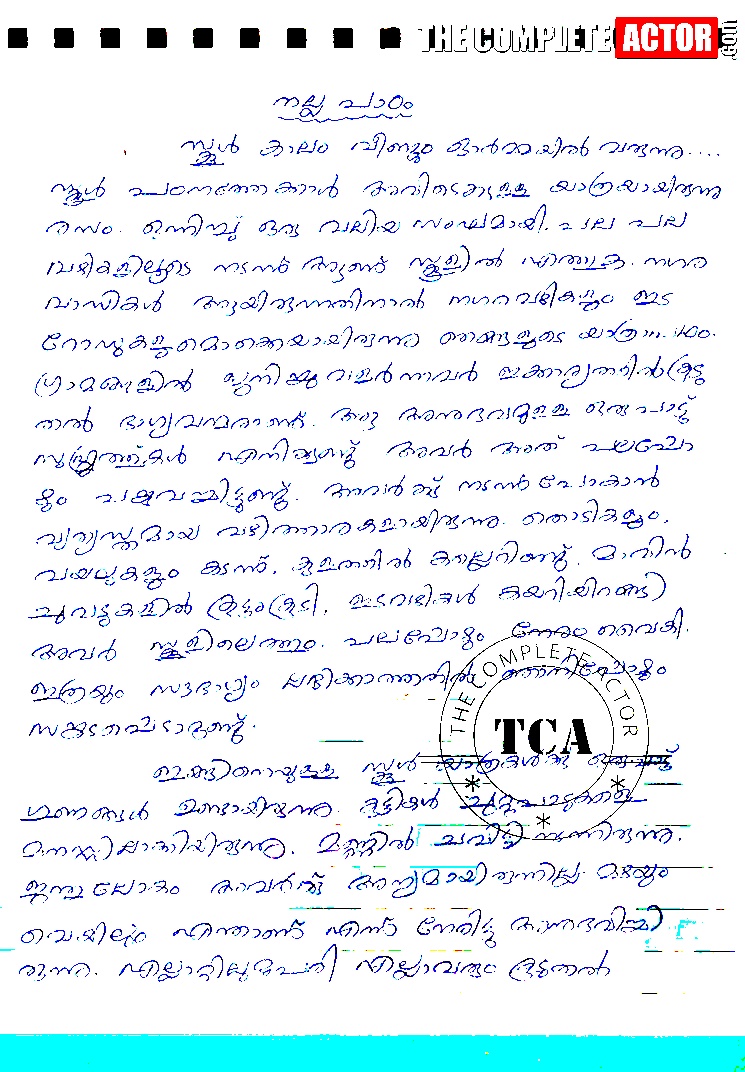 THE COMPLETE ACTOR .com
നല്ല പാഠം
സ്കൂൾ കാലം വീണ്ടും ഓർമ്മയിൽ വരുന്നു....
സ്കൂൾ പഠനത്തേക്കാൾ അവിടെക്കുള്ള യാത്രയായിരുന്നു
രസം. ഒന്നിച്ച് ഒരു വലിയ സംഘമായി, പല പല
വഴികളിലൂടെ നടന്ന് അങ്ങ് സ്കൂളിൽ എത്തുക. നഗര
വാസികൾ ആയിരുന്നതിനാൽ നഗരവഴികളും ഇട
റോഡുകളുമൊക്കെയായിരുന്നു ഞങ്ങളുടെ യാത്രാപഥം.
ഗ്രാമങ്ങളിൽ ജനിച്ചുവളർന്നവർ ഇക്കാര്യത്തിൽ കൂടു
തൽ ഭാഗ്യവാന്മാരാണ്. ആ അനുഭവമുള്ള ഒരുപാട്
സുഹൃത്തുക്കൾ എനിക്കുണ്ട് അവർ അത് പലപ്പോ
ഴും പങ്കുവച്ചിട്ടുണ്ട്. അവർക്ക് നടന്നുപോകാൻ
വ്യത്യസ്തമായ വഴിത്താരകളായിരുന്നു. തൊടികളും,
വയലുകളും കടന്ന്, കുളത്തിൽ കല്ലെറിഞ്ഞ്, മാവിൻ
ചുവടുകളിൽ കൂട്ടംകൂടി, ഇടവഴികൾ കയറിയിറങ്ങി
അവർ സ്കൂളിലെത്തും. പലപ്പോഴും നേരം വൈകി.
ഇത്രയും സൗഭാഗ്യം ലഭിക്കാത്തതിൽ ഞാനിപ്പോഴും
സങ്കടപ്പെടാറുണ്ട്.
ഇങ്ങിനെയുള്ള സ്കൂൾ യാത്രകൾക്കു ഒരുപാട്
ഗുണങ്ങൾ ഉണ്ടായിരുന്നു. കുട്ടികൾ ചുറ്റുപാടുകളെ
മനസ്സിലാക്കിയിരുന്നു. മണ്ണിൽ ചവിട്ടി നടന്നിരുന്നു.
ജന്തുലോകം അവർക്ക് അന്യമായിരുന്നില്ല. മഴയും
വെയിലും എന്താണ് എന്ന് നേരിട്ടു അനുഭവിച്ചി
രുന്നു. എല്ലാറ്റിലുമുപരി എല്ലാവരും കൂടുതൽ
THE COMPLETE ACTOR
TCA